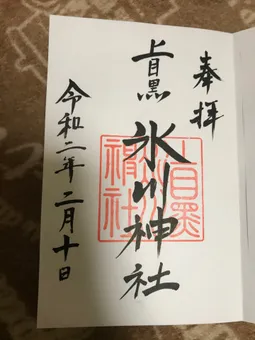 奉拝
上目黒
氷川神社
令和二年二月十日
上目黒
神社